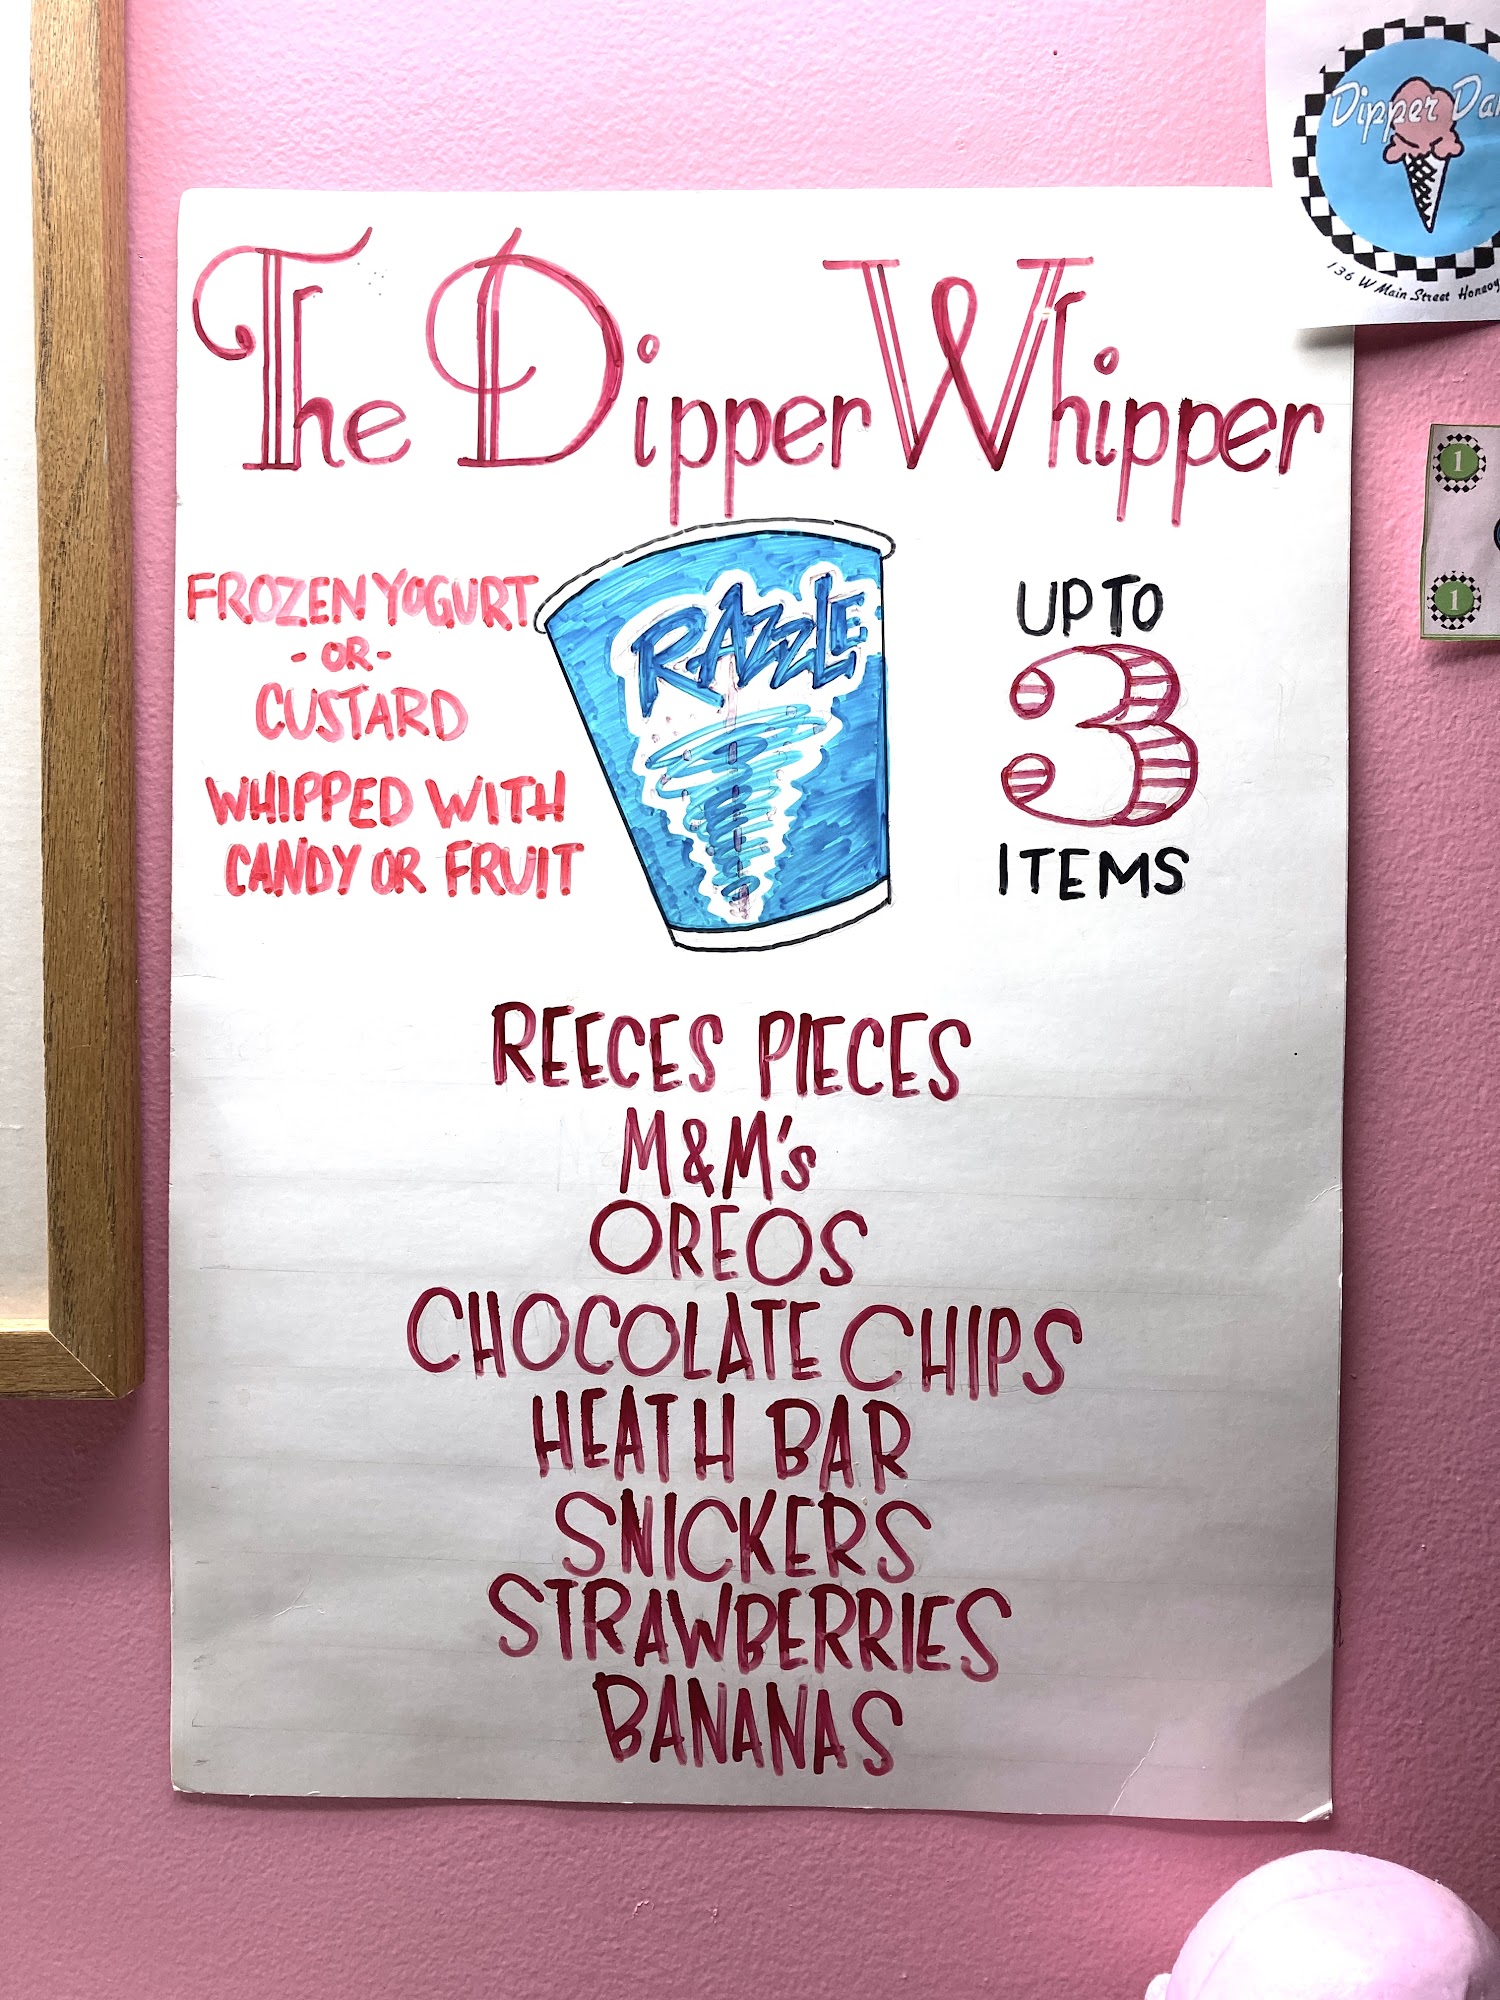 The Dipper Whipper
FROZEN YOGURT
- OR -
CUSTARD
WHIPPED WITH
CANDY OR FRUIT
RAZZLE
UP TO
3
ITEMS
REECES PIECES
M&M's
OREOS
CHOCOLATE CHIPS
HEATH BAR
SNICKERS
STRAWBERRIES
BANANAS
Dipper
136 W Main Street
1
1